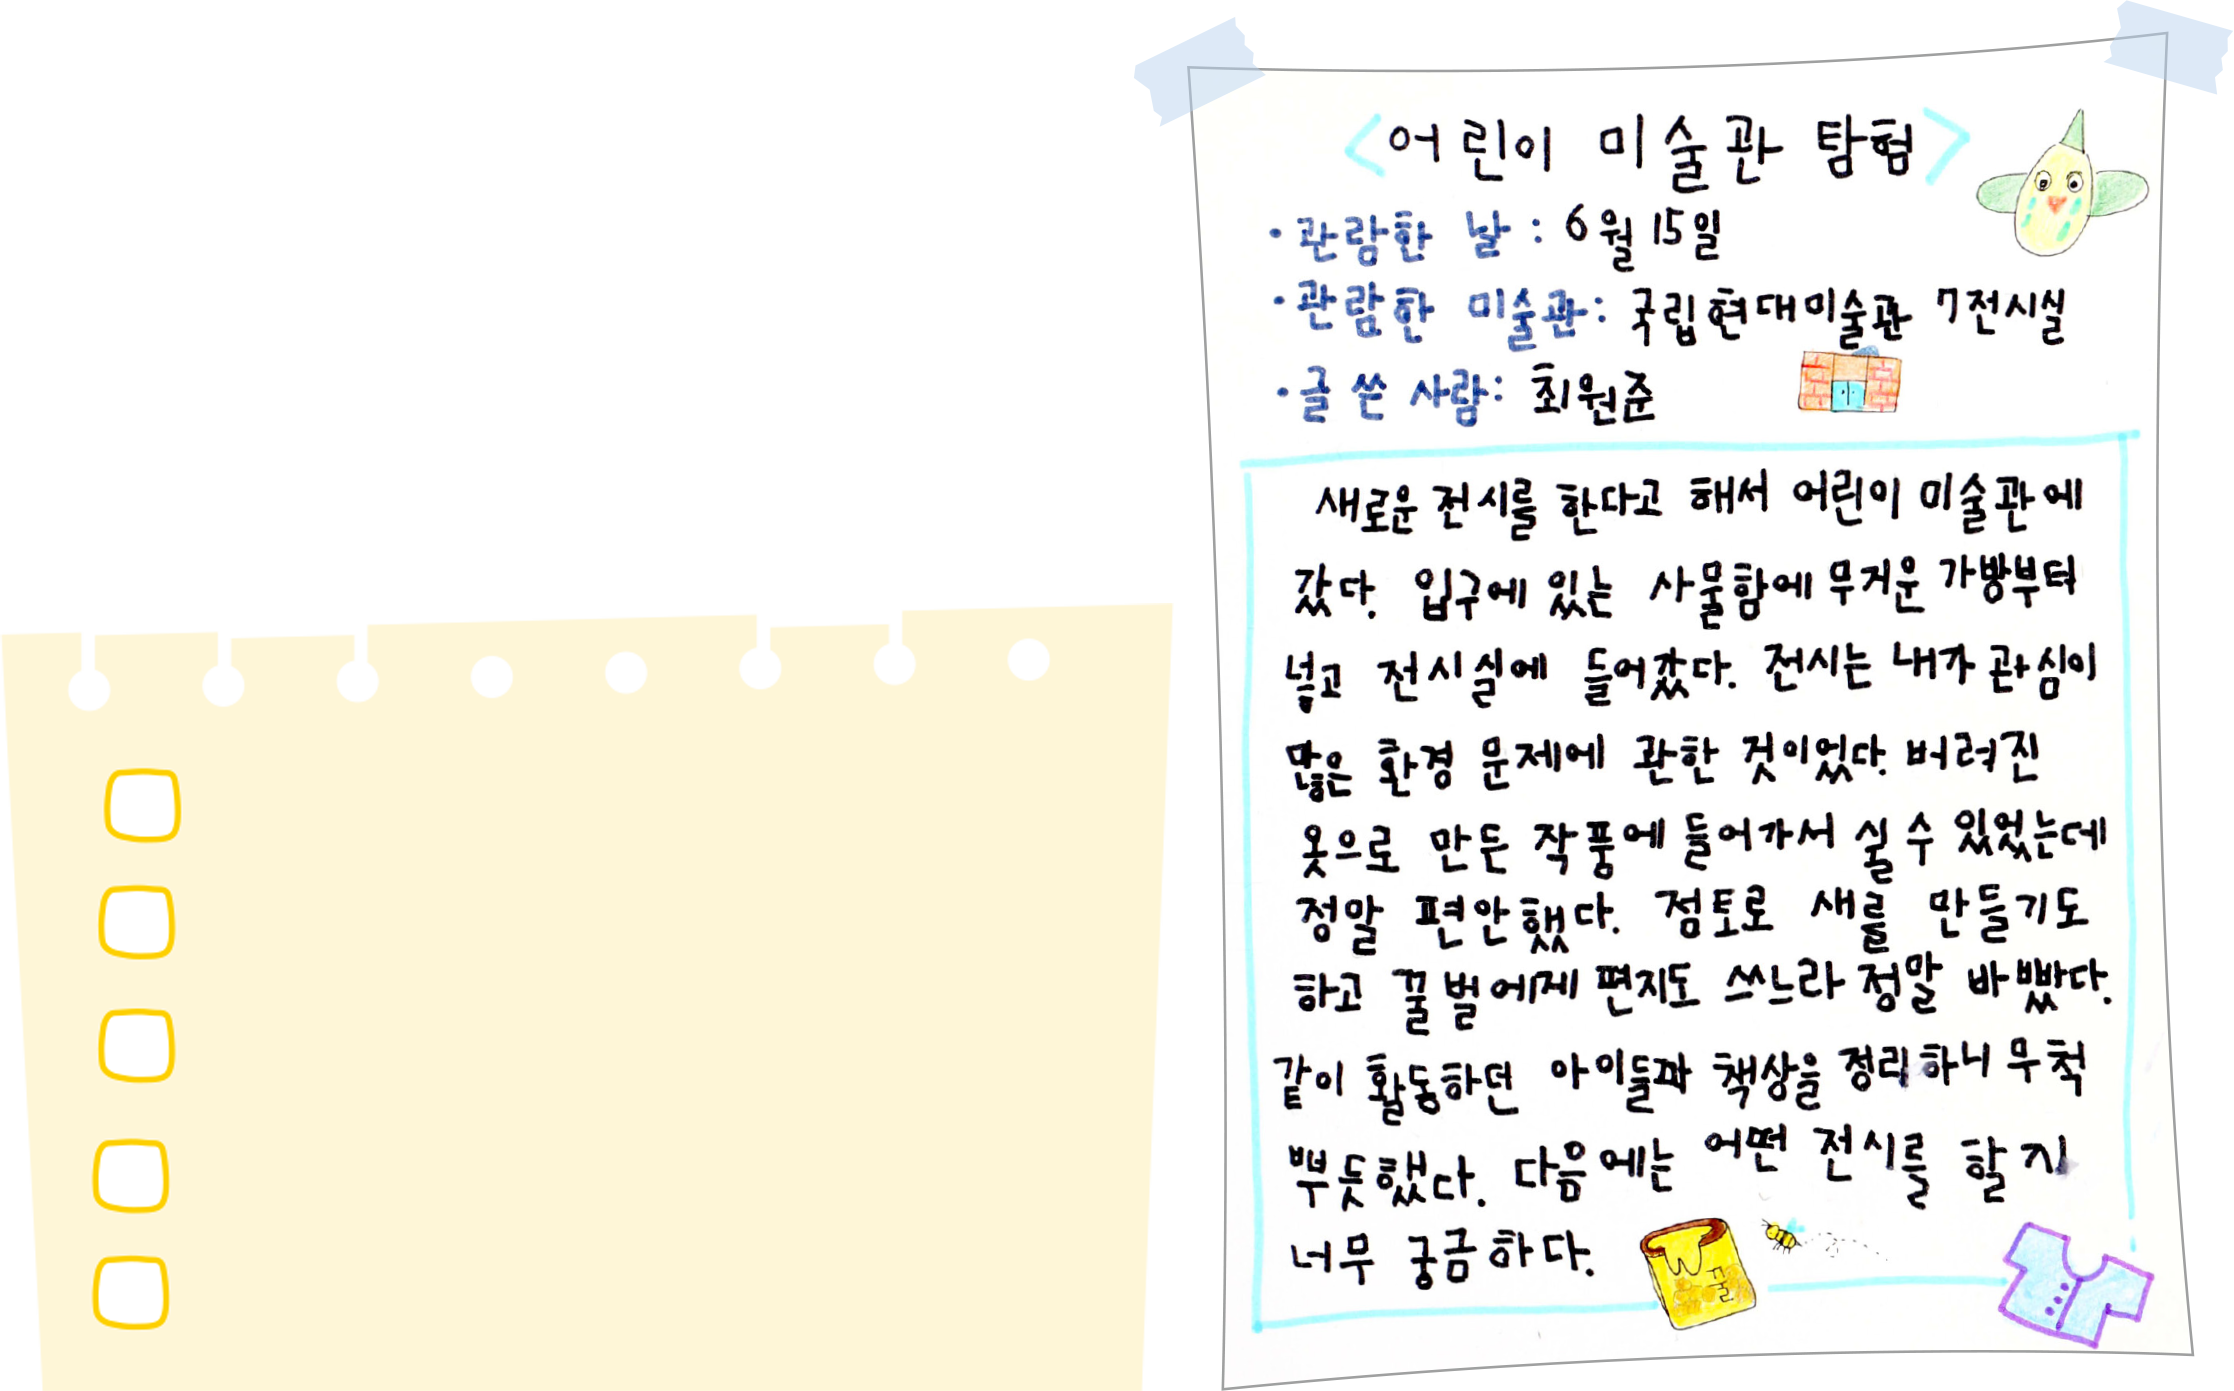 <어린이 미술관 탐험>
·관람한 날 : 6월 15일
·관람한 미술관: 국립현대미술관 7전시실
·글 쓴 사람: 최원준
새로운 전시를 한다고 해서 어린이 미술관에
갔다. 입구에 있는 사물함에 무거운 가방부터
넣고 전시실에 들어갔다. 전시는 내가 관심이
많은 환경 문제에 관한 것이었다. 버려진
옷으로 만든 작품에 들어가서 쉴 수 있었는데
정말 편안했다. 점토로 새를 만들기도
하고 꿀벌에게 편지도 쓰느라 정말 바빴다.
같이 활동하던 아이들과 책상을 정리하니 무척
뿌듯했다. 다음에는 어떤 전시를 할지
너무 궁금하다.
꿀